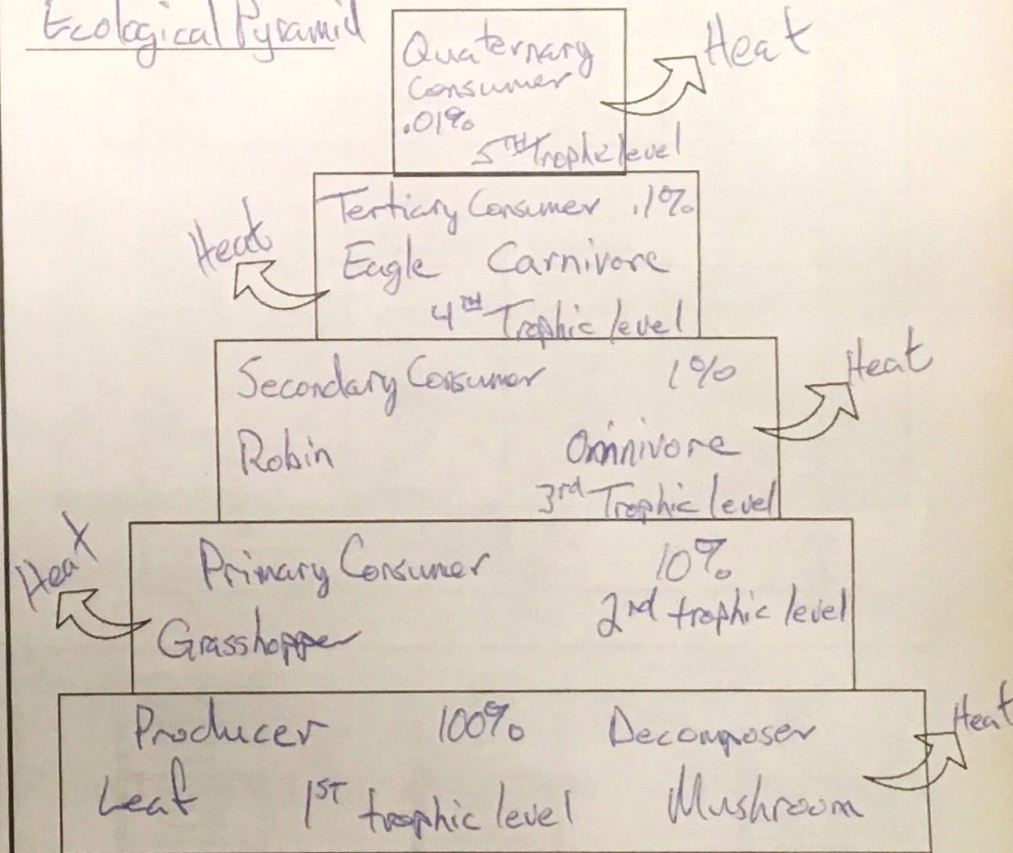 Ecological Pyramid
Quaternary
Consumer
.01%
5TH Trophic level
Heat
Tertiary Consumer .1%
Eagle Carnivore
4TH Trophic level
Heat
Secondary Consumer 1%
Robin Omnivore
3rd Trophic level
Heat
Primary Consumer 10%
2nd trophic level
Grasshopper
Heat
Producer 100% Decomposer
Leaf 1ST trophic level Mushroom
Heat